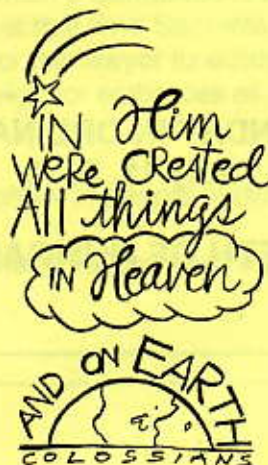 IN Him
WeRe CReated
All things
IN Heaven
AND ON EARTH
COLOSSIANS